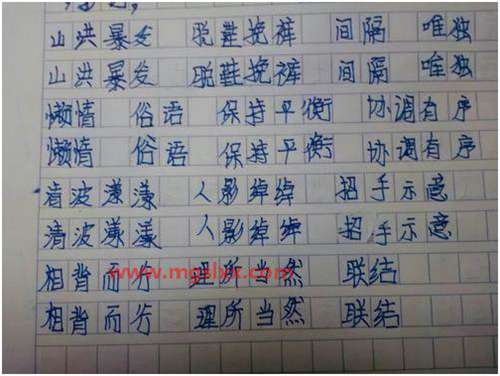 山洪暴发 脱鞋挽裤 间隔 唯独
山洪暴发 脱鞋挽裤 间隔 唯独
懒惰 俗语 保持平衡 协调有序
懒惰 俗语 保持平衡 协调有序
清波漾漾 人影绰绰 招手示意
清波漾漾 人影绰绰 招手示意
相背而行 理所当然 联结
www.mgslyx.com
相背而行 理所当然 联结